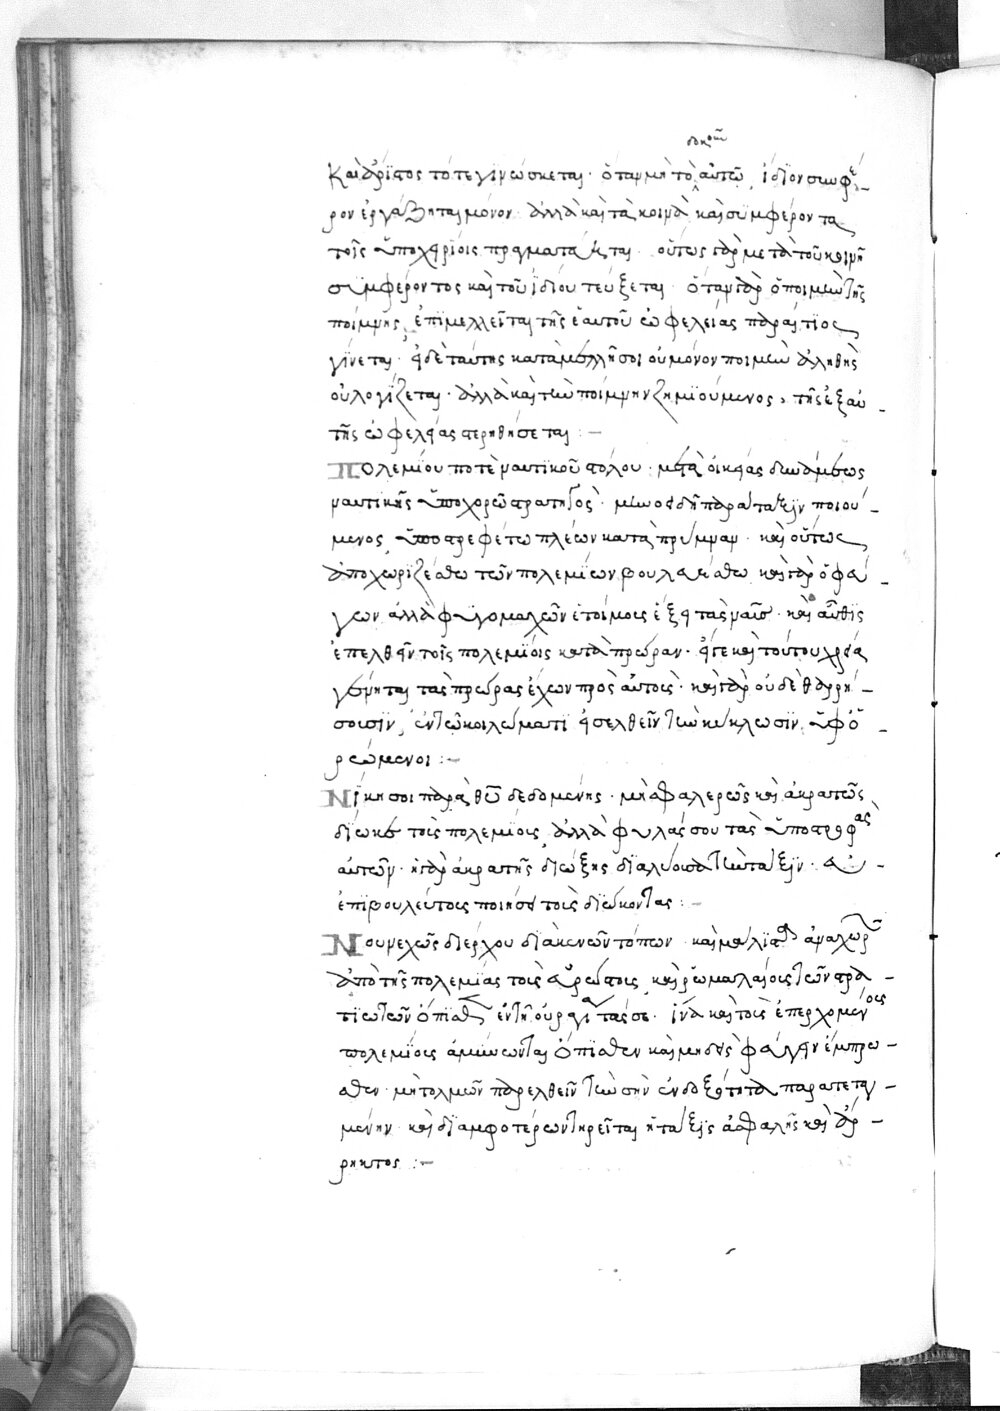 δοκοῦν
Καὶ ἄριστος τότε γινώσκεται· ὅταν μὴ τὸ αὐτῶ ἴδιον συμφέ-
ρον ἐργάζηται μόνον ἀλλὰ καὶ τὰ κοινὰ καὶ συμφέροντα
τοῖς ὑποχειρίοις πραγματεύεται· οὕτως γὰρ μετὰ τοῦ κοινῆ
συμφέροντος καὶ τοῦ ἰδίου τεύξεται· ὅταν γὰρ ὁ ποιμὴν τῆς
ποίμνης ἐπιμελλεῖται τῆς ἑαυτοῦ ὠφελείας παραίτιος
γίνεται· εἰ δὲ ταύτης καταμελλήσοι οὐ μόνον ποιμὴν ἀληθὴς
οὐ λογίζεται· ἀλλὰ καὶ τὴν ποίμνην ζημιούμενος, τῆς ἐξ αὐ-
τῆς ὠφελείας στερηθήσεται :—
Πολεμίου ποτὲ ναυτικοῦ στόλου· μετὰ οἰκείας δυνάμεως
ναυτικῆς ὑποχορῶ στρατηγὸς· μηνοειδῆ παράταξιν ποιού-
μενος ὑποστρεφέτω πλέων κατὰ πρύμναν· καὶ οὕτως
ἀποχωριζέσθω τῶν πολεμίων φυλακέσθω καὶ γὰρ ὁ φεύ-
γων ἀλλὰ φυγομαχῶν ἑτοίμους ἕξει τὰς ναῦς· καὶ αὖθις
ἐπελθεῖν τοῖς πολεμίοις κατὰ πρώραν· εἴγε καὶ τούτου χρεία
γένηται τὰς πρώρας ἔχων πρὸς αὐτοὺς· καὶ γὰρ οὐδὲ θαρρή-
σουσιν ἐν τῷ κοιλώματι εἰσελθεῖν τὴν κύκλωσιν ὑφο-
ρώμενοι :—
Νίκης σοι παρὰ θεοῦ δεδομένης· μὴ σφαλερῶς καὶ ἀκρατῶς
δίωκε τοὺς πολεμίους ἀλλὰ φυλάσσου τὰς ὑποστροφὰς
αὐτῶν· ἡ γὰρ ἀκρατὴς δίωξις διαλύουσα τὴν τάξιν· εὐ-
επιβουλεύτους ποιήσει τοὺς διώκοντας :—
Νουνεχῶς διέρχου διὰ κενῶν τόπων· καὶ μάλιστα ἀναχωρῶν
ἀπὸ τῆς πολεμίας τοὺς εὐρώστους καὶ ῥωμαλαίους τῶν στρα-
τιωτῶν ὄπισθεν ἐν τῇ οὐραγίᾳ τάσσε· ἵνα καὶ τοὺς ἐπερχομένους
πολεμίους ἀμύνωνται ὄπισθεν καὶ μηδεὶς φεύγειν ἔμπρο-
σθεν· μὴ τολμῶν παρελθεῖν τὴν σὴν ἐνδοξότητα παραπεταγ-
μένην· καὶ δι' ἀμφοτέρων τηρεῖται ἡ τάξις ἀσφαλὴς καὶ ἄρ-
ρηκτος :—